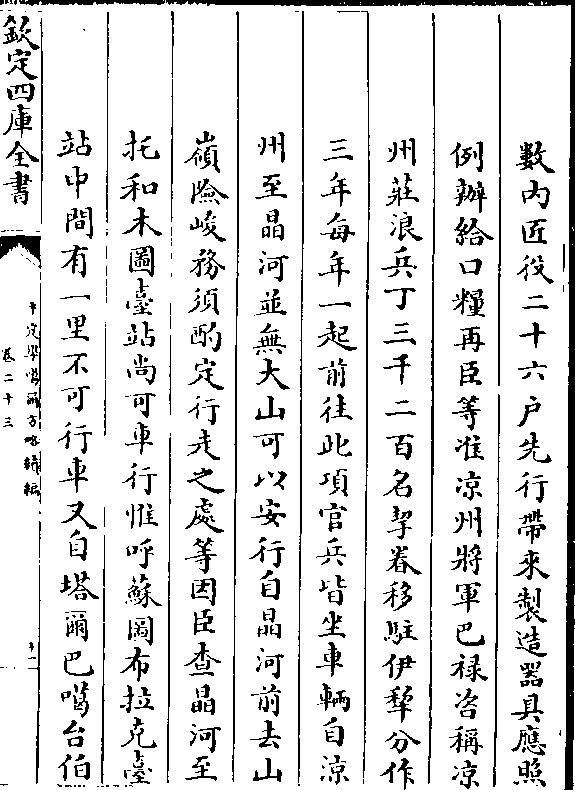 數內匠役二十六户先行帶來製造器具應照
例辦給口糧再臣等准凉州將軍巴禄咨稱凉
州莊浪兵丁三千二百名挈眷移駐伊犂分作
三年每年一起前往此項官兵皆坐車輛自凉
州至晶河並無大山可以安行自晶河前去山
嶺險峻務須酌定行走之處等因臣查晶河至
托和木圖臺站尚可車行惟呼蘇圖布拉克臺
站中間有一里不可行車又自塔爾巴噶台伯
欽定四庫全書
平定準噶爾方略續編
卷二十三